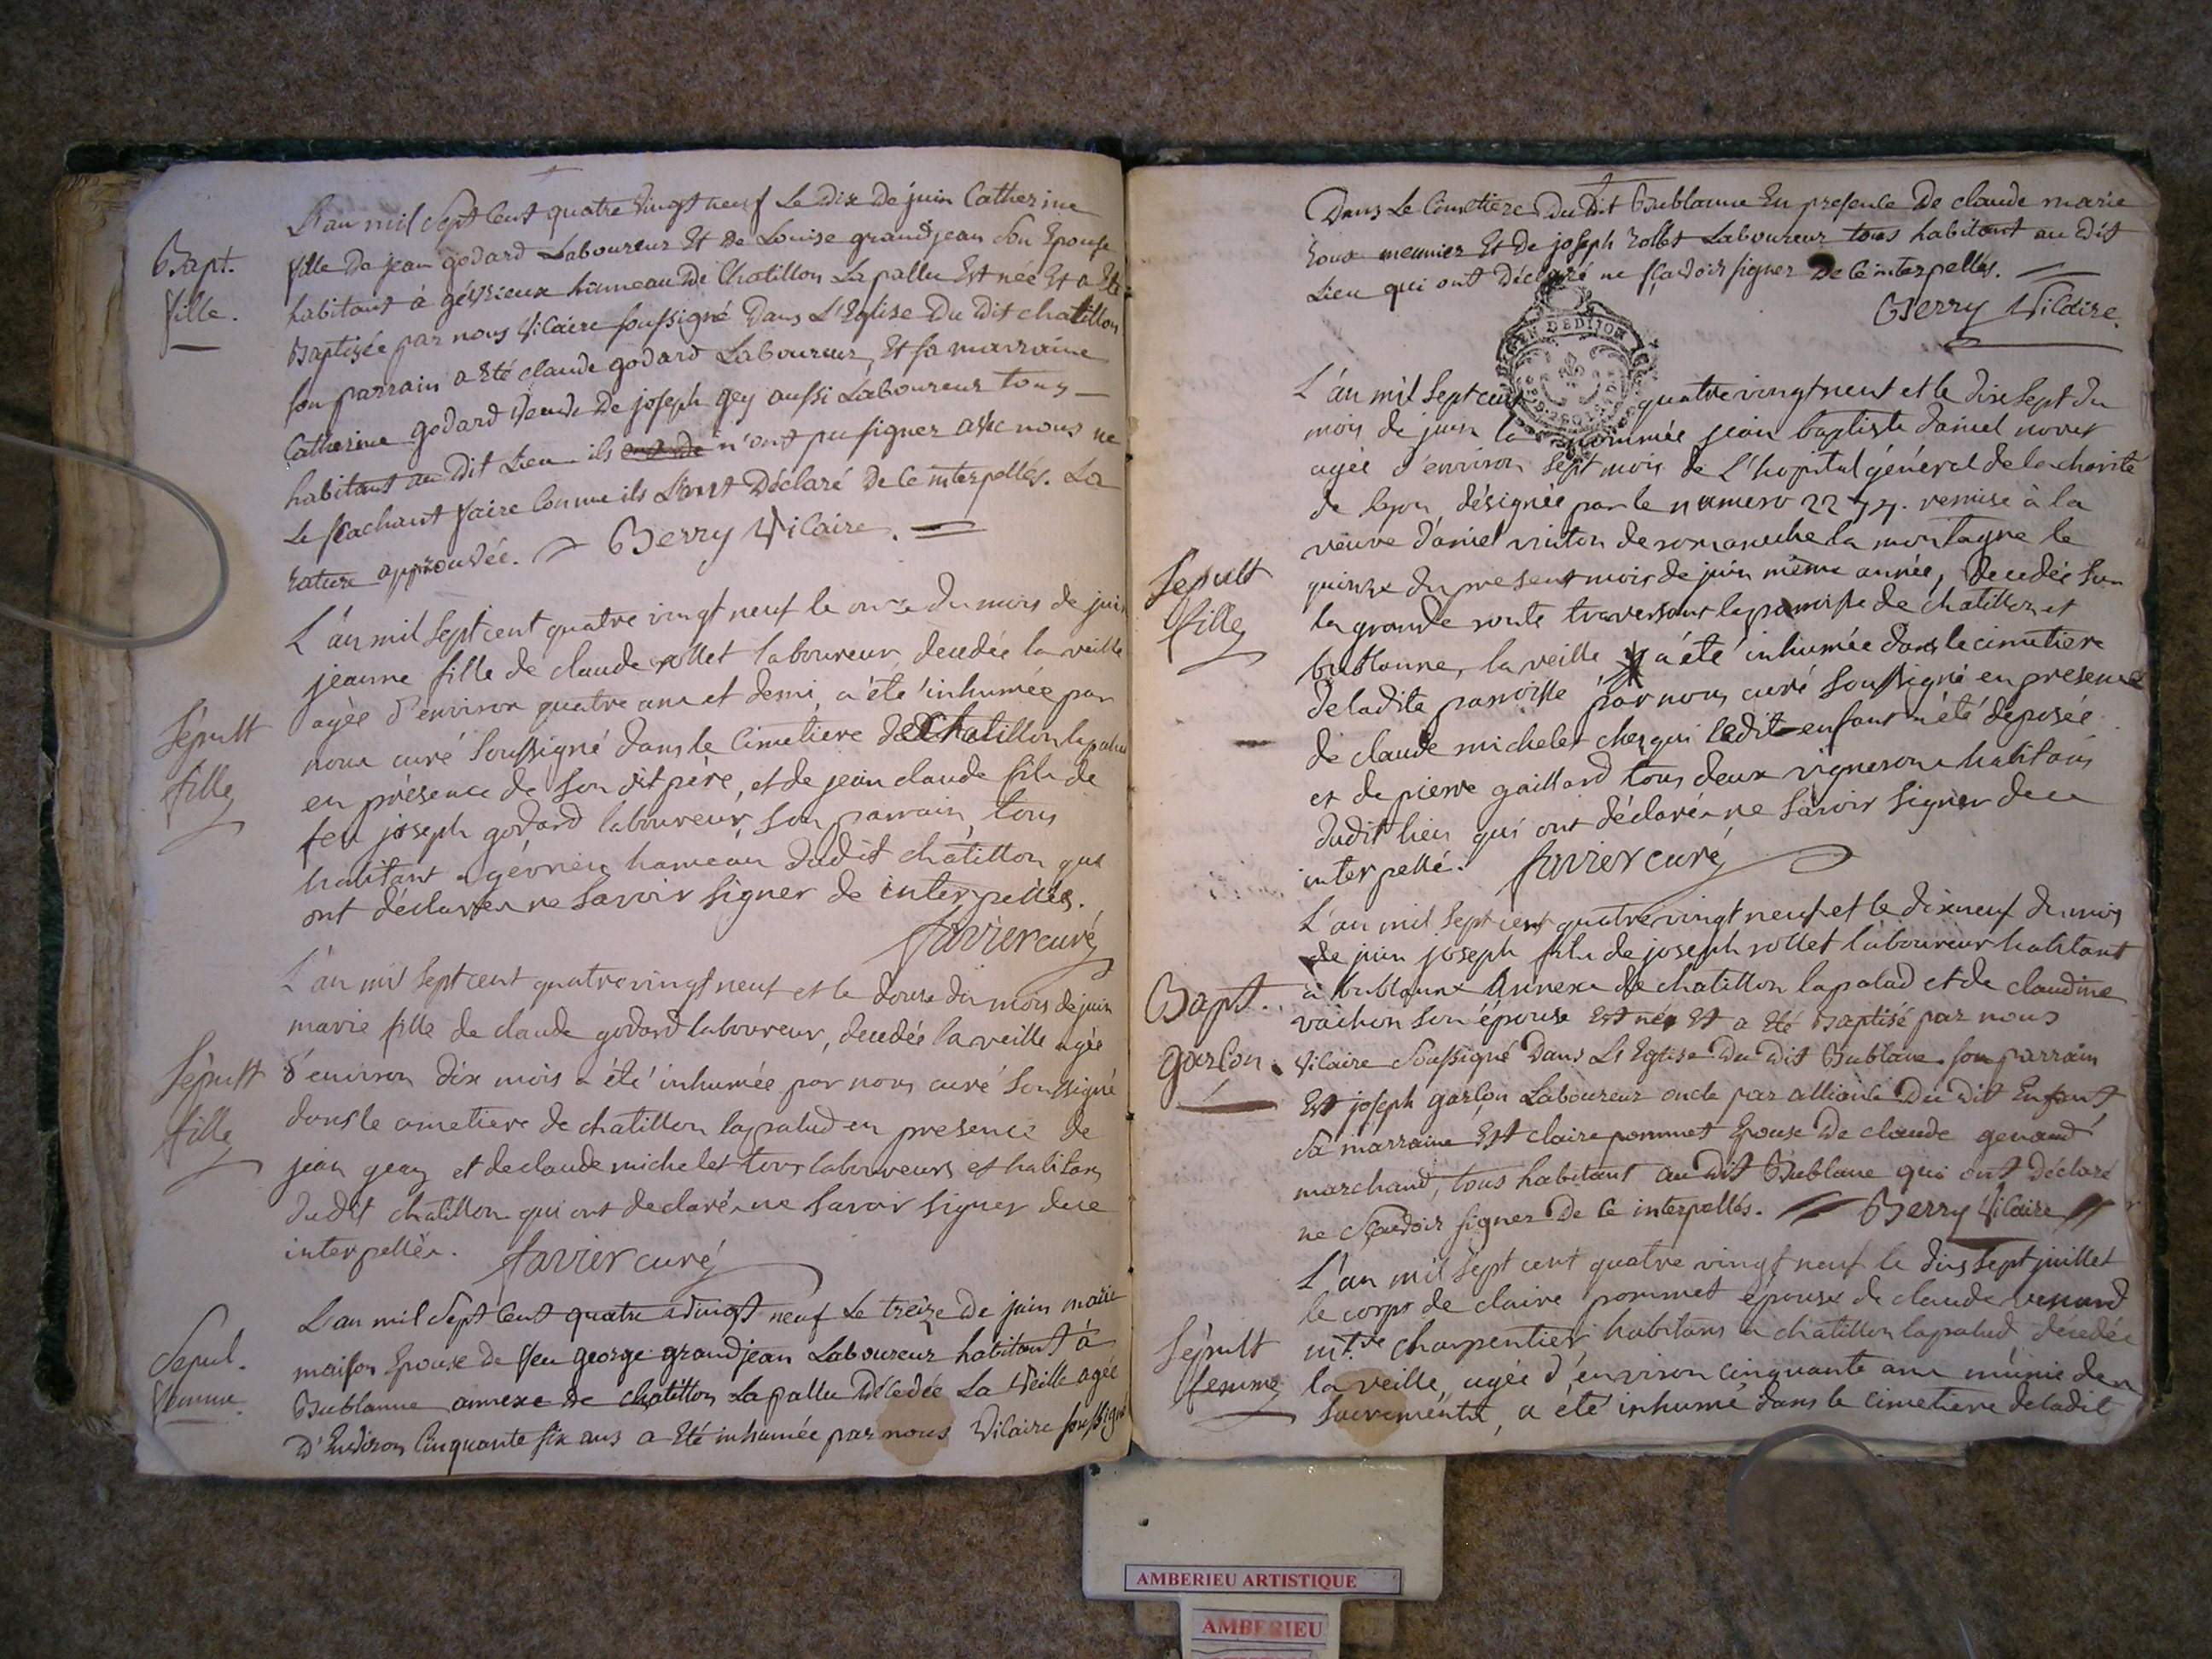 L'an mil Sept Cent quatre vingt neuf Le Dix De juin Catherine
Bapt. fille De jean godard Laboureur Et De Louise grandjean Son Epouse
fille. habitant à gévrieux hameau De Chatillon La pallu Est née Et a Eté
Baptisée par nous Vicaire soussigné Dans L'Eglise Du Dit chatillon
son parrain a Eté claude godard Laboureur, Et sa marraine
Catherine godard Veuve De joseph gey aussi Laboureur tous
habitant au Dit Lieu ils n'ont pu signer avec nous ne
Le sçachant faire Comme ils L'ont Déclaré De Ce interpellés. La
rature approuvée. Berry Vicaire.
L'an mil sept cent quatre vingt neuf le onze du mois de juin
jeanne fille de claude rollet laboureur, decedée la veille
agée d'environ quatre ans et demi, a été inhumée par
Sépult nous curé soussigné dans le cimetiere de Chatillon lapalud
fille en présence de son dit père, et de jean claude fils de
feu joseph godard laboureur, son parrain, tous
habitant a gévrieu hameau dudit chatillon qui
ont déclarés ne savoir signer de interpellés.
favier curé
L'an mil sept cent quatrevingt neuf et le douze du mois de juin
marie fille de claude godard laboureur, decedée la veille agée
Sépult d'environ dix mois a été inhumée par nous curé soussigné
dans le cimetiere de chatillon lapalud en presence de
fille jean geay et de claude michelet tous laboureurs et habitans
dudit chatillon qui ont declarés ne savoir signer de ce
interpellés. favier curé
L'an mil Sept Cent quatre vingt neuf Le treize De juin marie
Sepul. maison Epouse De feu george grandjean Laboureur habitant à
femme. Bublanne annexe De chatillon La pallu Décedée La Veille agée
D'Environ Cinquante six ans a Eté inhumée par nous Vicaire soussigné
Dans Le Cimetiere Du Dit Bublanne En presence De claude marie
roux meunier Et De joseph rollet Laboureur tous habitant au Dit
Lieu qui ont Déclaré ne sçavoir signer De Ce interpellés.
Berry Vicaire.
EN DE DIJON
L'an mil sept cent quatrevingt neuf et le dix sept du
mois de juin la nommée jean baptiste daniel
agée d'environ sept mois de L'hopital général de la charité
de lyon, désignée par le numero remise à la
veuve daniel de la montagne le
Sepult quinze du present mois de juin même année, decedée sur
fille la grande route traversant la paroisse de chatillon et
bublanne, la veille a été inhumée dans le cimetiere
de ladite paroisse par nous curé soussigné en presence
de claude michelet chez qui ledit enfant a été déposée
et de pierre gaillard tous deux vignerons habitans
dudit lieu qui ont déclarés ne savoir signer de ce
interpellé. favier curé
L'an mil sept cent quatre vingt neuf et le dix neuf du mois
de juin joseph fils de joseph rollet laboureur habitant
Bapt. à bublanne Annexe de chatillon lapalud et de claudine
vachon son épouse Est né Et a Eté Baptisé par nous
garçon. Vicaire Soussigné Dans L'Eglise Du Dit Bublane. son parrain
Est joseph garçon Laboureur oncle par alliance Du Dit Enfant,
Sa marraine Est claire pommet Epouse De claude
marchand, tous habitant au Dit Bublane qui ont Déclaré
ne Sçavoir signer De Ce interpellés. Berry Vicaire
L'an mil sept cent quatre vingt neuf le dix sept juillet
le corps de claire pommet épouse de claude
Sépult md. charpentier, habitans a chatillon lapalud décedée
femme la veille, agée d'environ cinquante ans munie des
sacrements, a été inhumé dans le cimetiere de ladit
AMBERIEU ARTISTIQUE
AMBERIEU